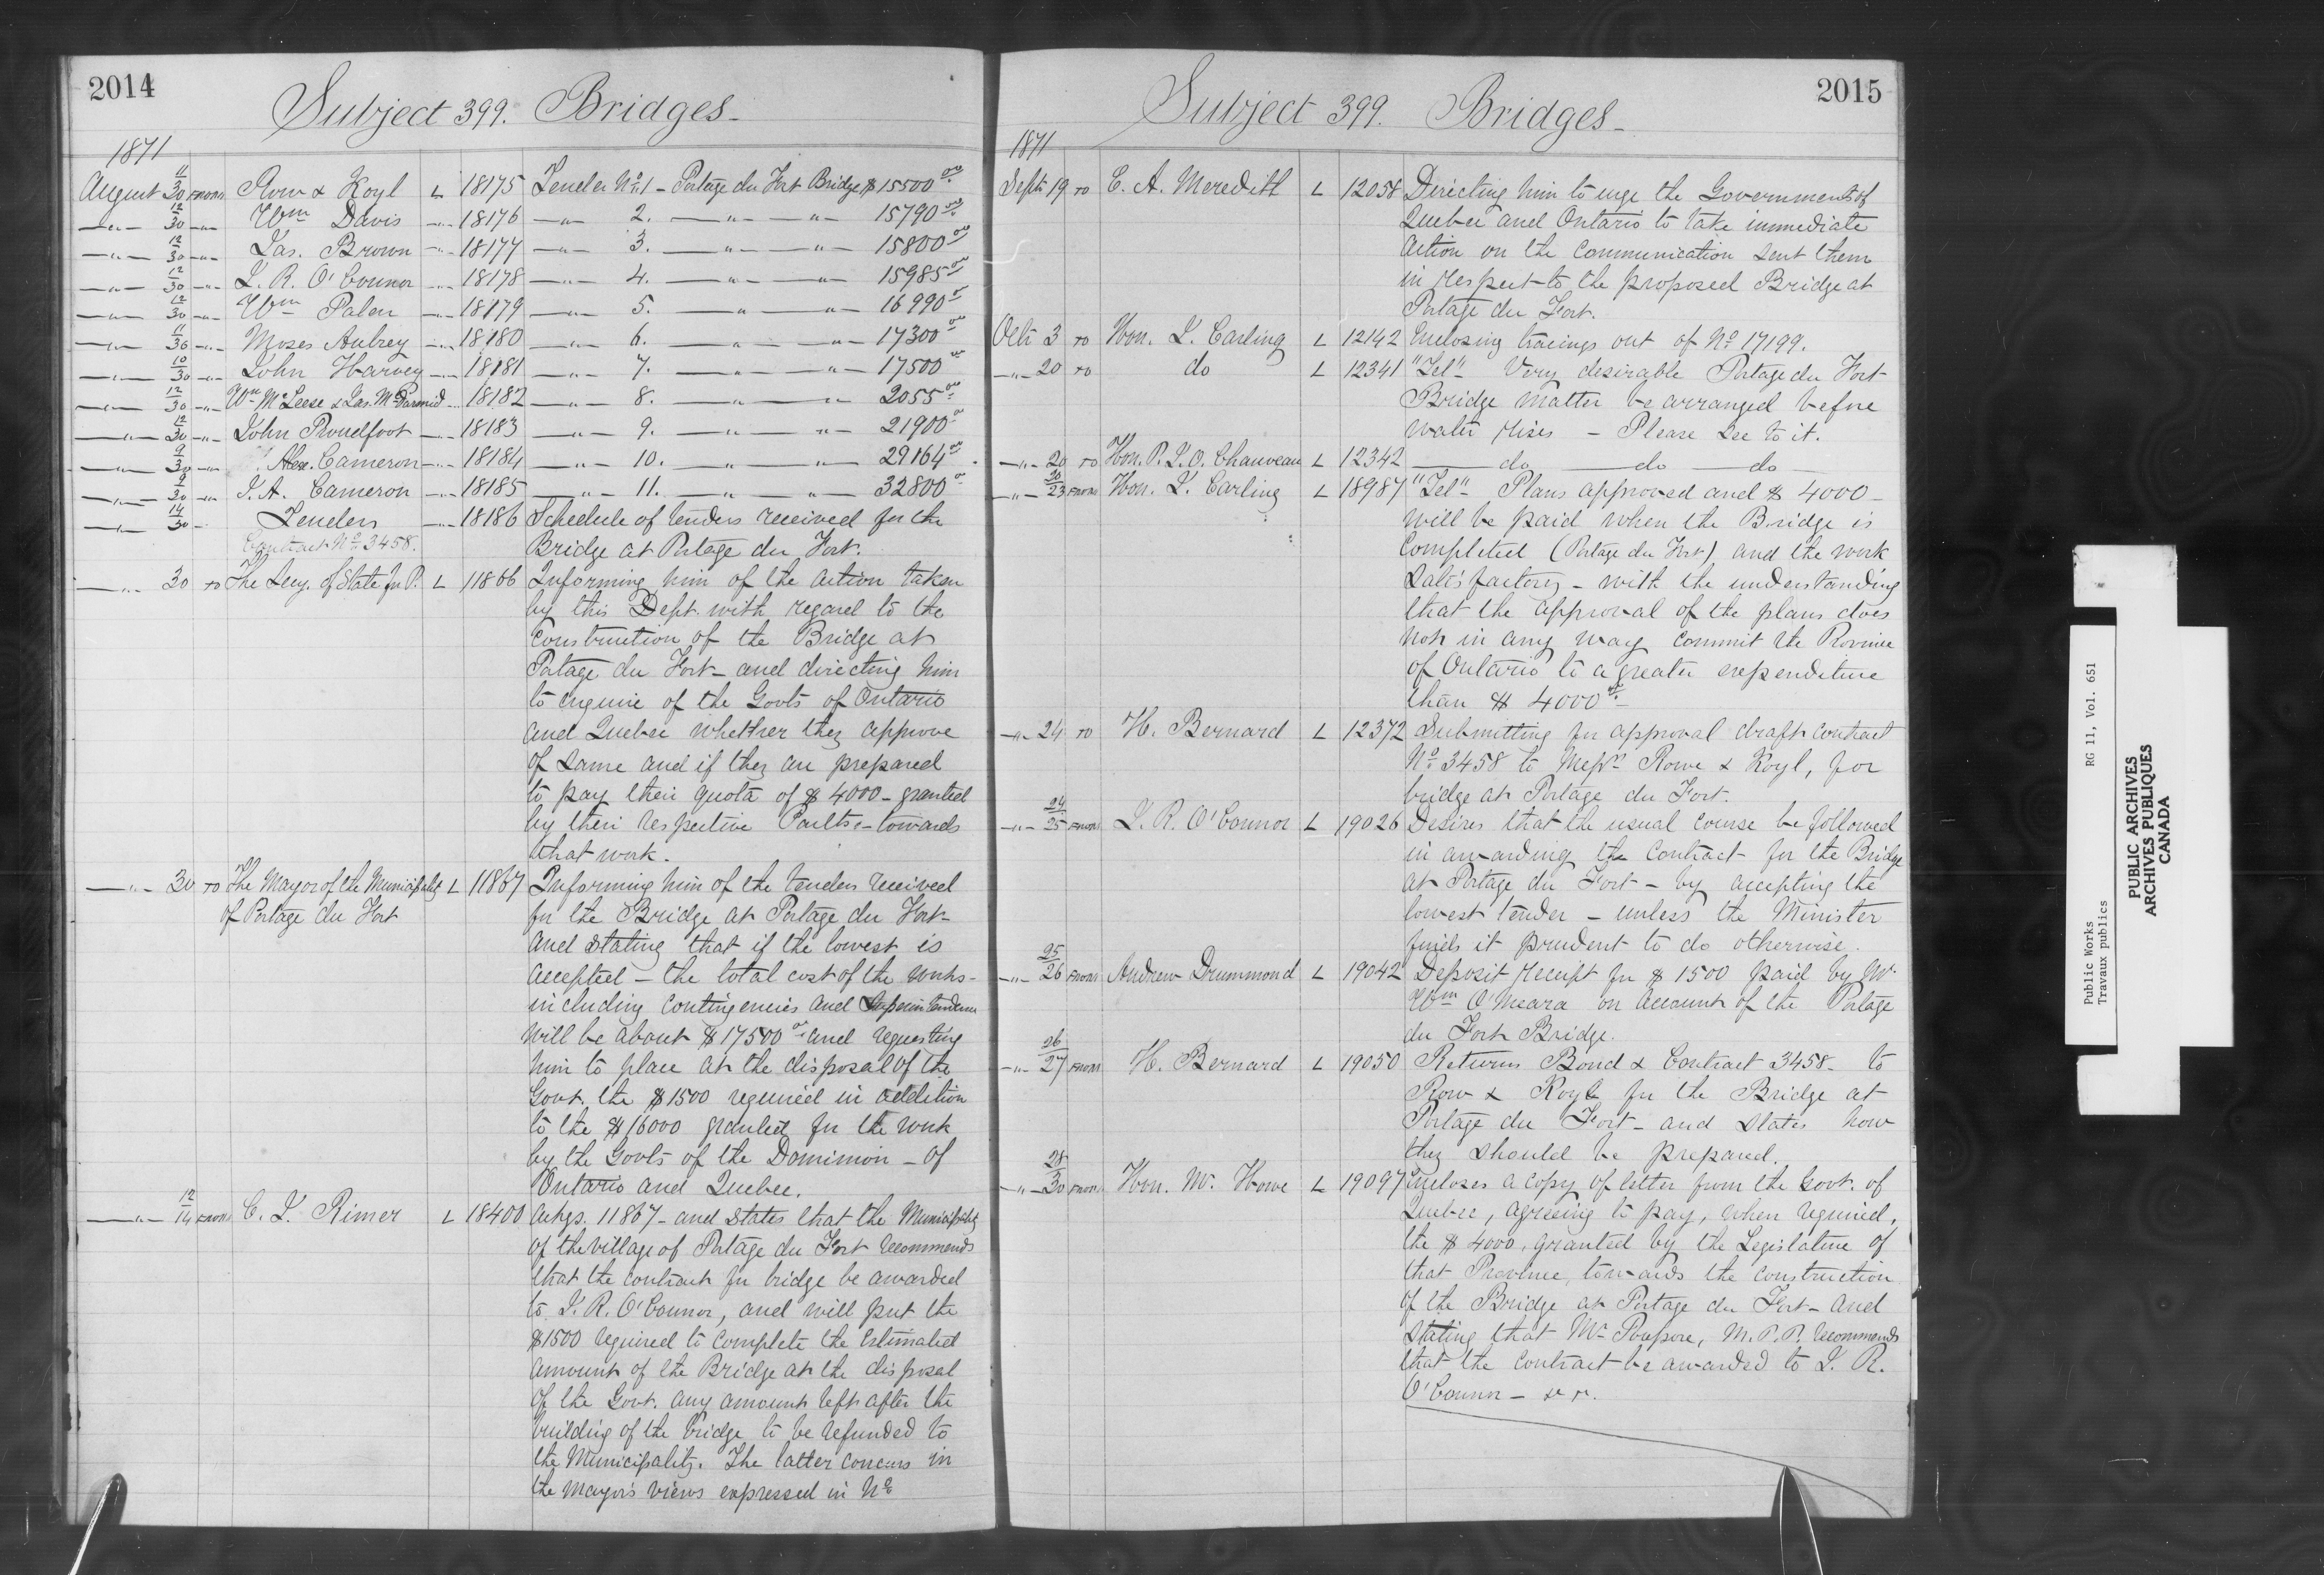 2014
Subject 399. Bridges_
1871
August 11/30 FROM Row & Royl L 18175 Tender No. 1 - Portage du Fort Bridge $ 15500 00
—"— 12/30 —"— Wm Davis —"— 18176 —"— 2. —"— —"— 15790 00
—"— 12/30 —"— Jas. Brown —"— 18177 —"— 3. —"— —"— 15800 00
—"— 12/30 —"— J. R. O'Connor —"— 18178 —"— 4. —"— —"— 15985 00
—"— 12/30 —"— Wm Palen —"— 18179 —"— 5. —"— —"— 16990 00
—"— 11/30 —"— Moses Aubrey —"— 18180 —"— 6. —"— —"— 17300 00
—"— 10/30 —"— John Harvey —"— 18181 —"— 7. —"— —"— 17500 00
—"— 12/30 —"— Wm McLeese & Jas. McDarmid —"— 18182 —"— 8. —"— —"— 2055 00
—"— 12/30 —"— John Proudfoot —"— 18183 —"— 9. —"— —"— 21900 00
—"— 9/30 —"— Alex. Cameron —"— 18184 —"— 10. —"— —"— 29164 00
—"— 9/30 —"— J. A. Cameron —"— 18185 —"— 11. —"— —"— 32800 00
—"— 14/30 - Tenders —"— 18186 Schedule of tenders received for the
Contract No. 3458. Bridge at Portage du Fort.
—"— 30 TO The Secy. of State for P. L 11866 Informing him of the action taken
by this Dept. with regard to the
construction of the Bridge at
Portage du Fort - and directing him
to enquire of the Govts of Ontario
and Quebec whether they approve
of same and if they are prepared
to pay their quota of $ 4000 - granted
by their respective Parlts - towards
that work.
—"— 30 TO The Mayor of the Municipality L 11867 Informing him of the tenders received
of Portage du Fort for the Bridge at Portage du Fort -
and stating that if the lowest is
accepted - the total cost of the works -
including contingencies and Superintendence
will be about $ 17500 00 and requesting
him to place at the disposal of the
Govt. the $ 1500 required in addition
to the $ 16000 granted for the work
by the Govts of the Dominion - of
Ontario and Quebec.
—"— 12/14 FROM C. J. Rimer L 18400 Ackgs. 11867 - and states that the Municipality
of the village of Portage du Fort recommends
that the contract for bridge be awarded
to J. R. O'Connor, and will put the
$1500 required to complete the estimated
amount of the Bridge at the disposal
of the Govt. any amount left after the
building of the bridge to be refunded to
the Municipality. The latter concurs in
the Mayor's views expressed in No
2015
Subject 399. Bridges_
1871
Septr 19 TO E. A. Meredith L 12058 Directing him to urge the Governments of
Quebec and Ontario to take immediate
action on the communication sent them
in respect to the proposed Bridge at
Portage du Fort.
Octr 3 TO Hon. J. Carling L 12142 Enclosing tracings out of No. 17199.
—"— 20 TO do L 12341 "Tel" Very desirable Portage du Fort
Bridge matter be arranged before
water rises - Please see to it.
—"— 20 TO Hon. P. J. O. Chauveau L 12342 — do — do — do —
—"— 20/23 FROM Hon. J. Carling L 18987 "Tel" Plans approved and $ 4000 -
will be paid when the Bridge is
completed (Portage du Fort) and the work
satisfactory - with the understanding
that the approval of the plans does
not in any way commit the Province
of Ontario to a greater expenditure
than $ 4000 00 -
—"— 24 TO H. Bernard L 12372 Submitting for approval draft contract
No. 3458 to Messrs Rowe & Royl, for
bridge at Portage du Fort.
—"— 24/25 FROM J. R. O'Connor L 19026 Desires that the usual course be followed
in awarding the contract for the Bridge
at Portage du Fort - by accepting the
lowest tender - unless the Minister
finds it prudent to do otherwise.
—"— 25/26 FROM Andrew Drummond L 19042 Deposit receipt for $ 1500 paid by Mr.
Wm O'Meara on account of the Portage
du Fort Bridge.
—"— 26/27 FROM H. Bernard L 19050 Returns Bond & Contract 3458 - to
Row & Royl for the Bridge at
Portage du Fort - and states how
they should be prepared.
—"— 28/30 FROM Hon. Mr. Howe L 19097 Encloses a copy of letter from the Govt. of
Quebec, agreeing to pay, when required,
the $ 4000, granted by the Legislature of
that Province, towards the construction
of the Bridge at Portage du Fort - and
stating that Mr. Poupore, M.P.P. recommends
that the contract be awarded to J. R.
O'Connor -
Public Works RG 11, Vol. 651
Travaux publics
PUBLIC ARCHIVES
ARCHIVES PUBLIQUES
CANADA